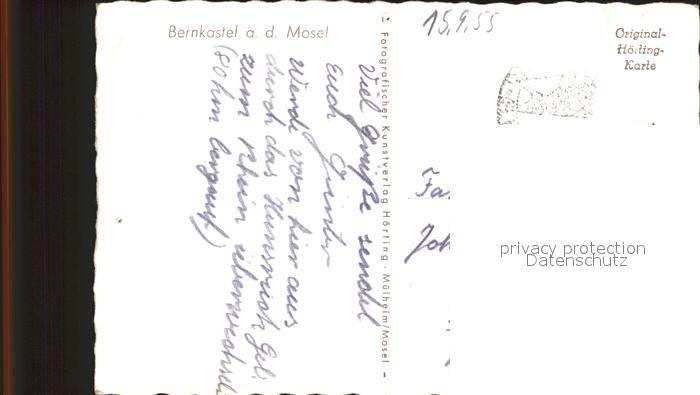 Bernkastel a. d. Mosel
15.9.55
Original-
Hörting-
Karte
Fotografischer Kunstverlag Hörting · Mülheim/Mosel
Viel Grüße sendet
Euch Günter
Werde von hier aus
durch das Hunsrück Geb.
zum Rhein überwechsel
(80 km bergauf)
Fa
Joh
privacy protection
Datenschutz